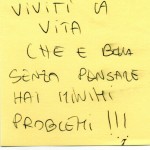 VIVITI LA
VITA
CHE E BELLA
SENZA PENSARE
HAI MINIMI
PROBLEMI !!!